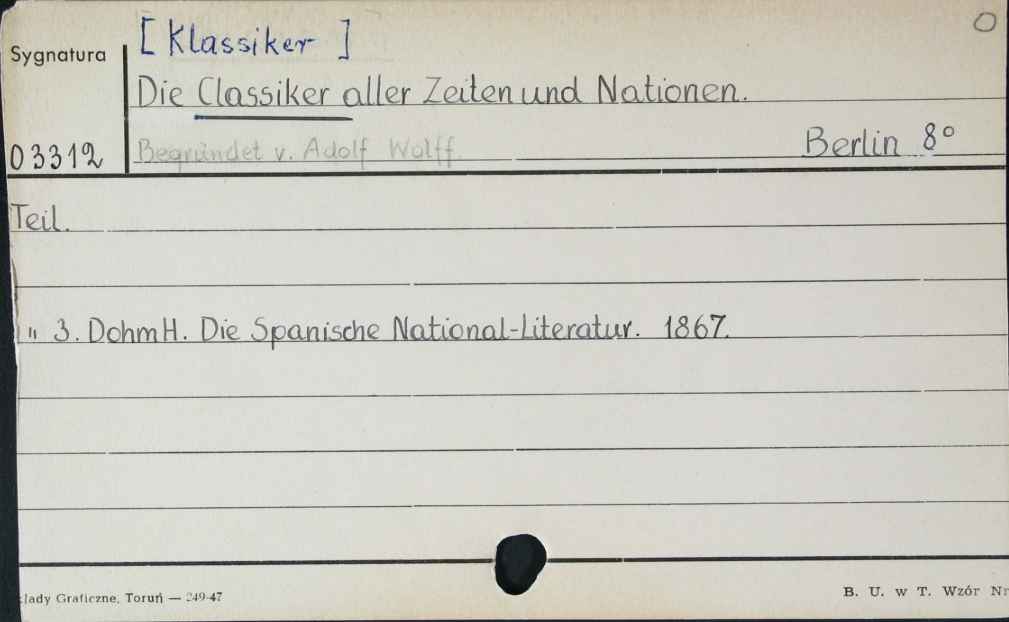 [Klassiker]
O
Sygnatura
Die Classiker aller Zeiten und Nationen.
03312
Begründet v. Adolf Wolff.
Berlin 8°
Teil.
" 3. Dohm H. Die Spanische National-Literatur. 1867.
łady Graficzne, Toruń — 249-47
B. U. w T. Wzór Nr